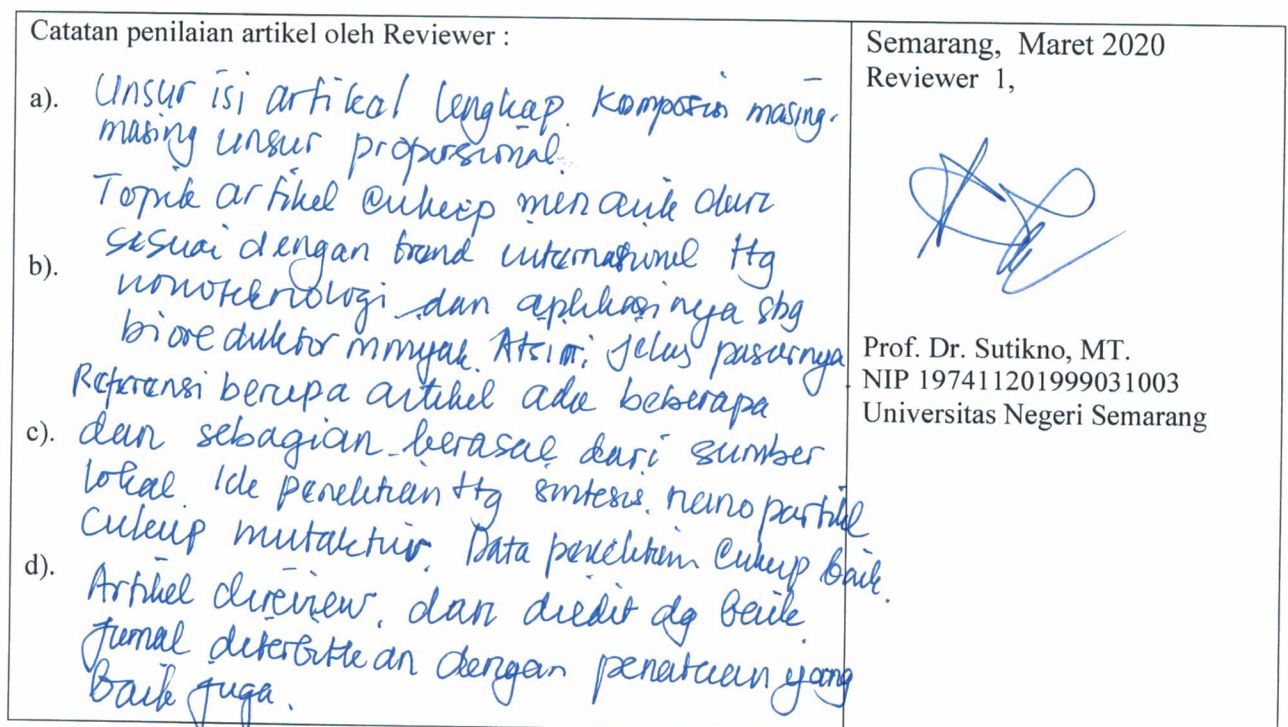 Catatan penilaian artikel oleh Reviewer :
a). Unsur isi artikel lengkap. Komposisi masing-
masing unsur proporsional.
Topik artikel cukup menarik dan
b). sesuai dengan trend internasional ttg
nanoteknologi dan aplikasinya sbg
bioreduktor minyak Atsiri, jelas pasarnya
Referensi berupa artikel ada beberapa
c). dan sebagian berasal dari sumber
lokal. Ide penelitian ttg sintesis nano partikel
cukup mutakhir. Data penelitian cukup baik.
d). Artikel direview, dan diedit dg baik
Jurnal diterbitkan dengan penataan yang
baik juga.
Semarang, Maret 2020
Reviewer 1,
Prof. Dr. Sutikno, MT.
NIP 197411201999031003
Universitas Negeri Semarang